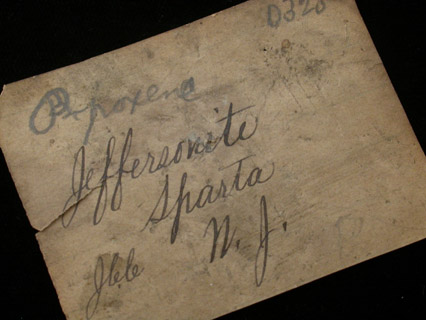 D320
Pyroxene
Jeffersonite
Sparta
N. J.